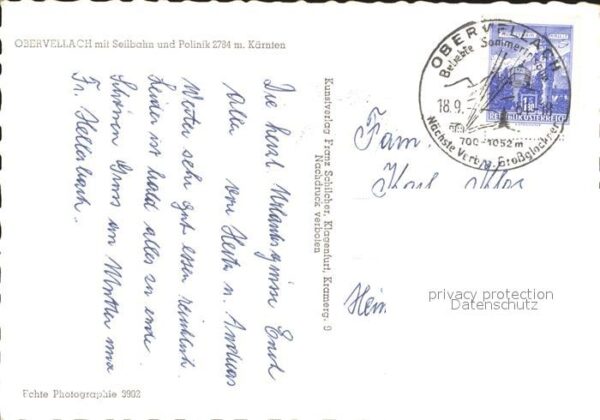 OBERVELLACH mit Seilbahn und Polinik 2784 m. Kärnten
Die herzl. Urlaubsgrüsse Euch
Allen von Herta u. Andreas
Wetter sehr gut essen reichlich.
Leider ist bald alles zu ende.
Schönen Gruss an Mutter und
Fr. Hellenbach.
Kunstverlag Franz Schilcher, Klagenfurt, Kramerg. 9
Nachdruck verboten
OBERVELLACH
Beliebte Sommerfrische
18.9.
700-1052 m
Nächste Verb. z. Großglockner
REPUBLIK ÖSTERREICH
Fam.
Karl
Hein
privacy protection
Datenschutz
Echte Photographie 3992